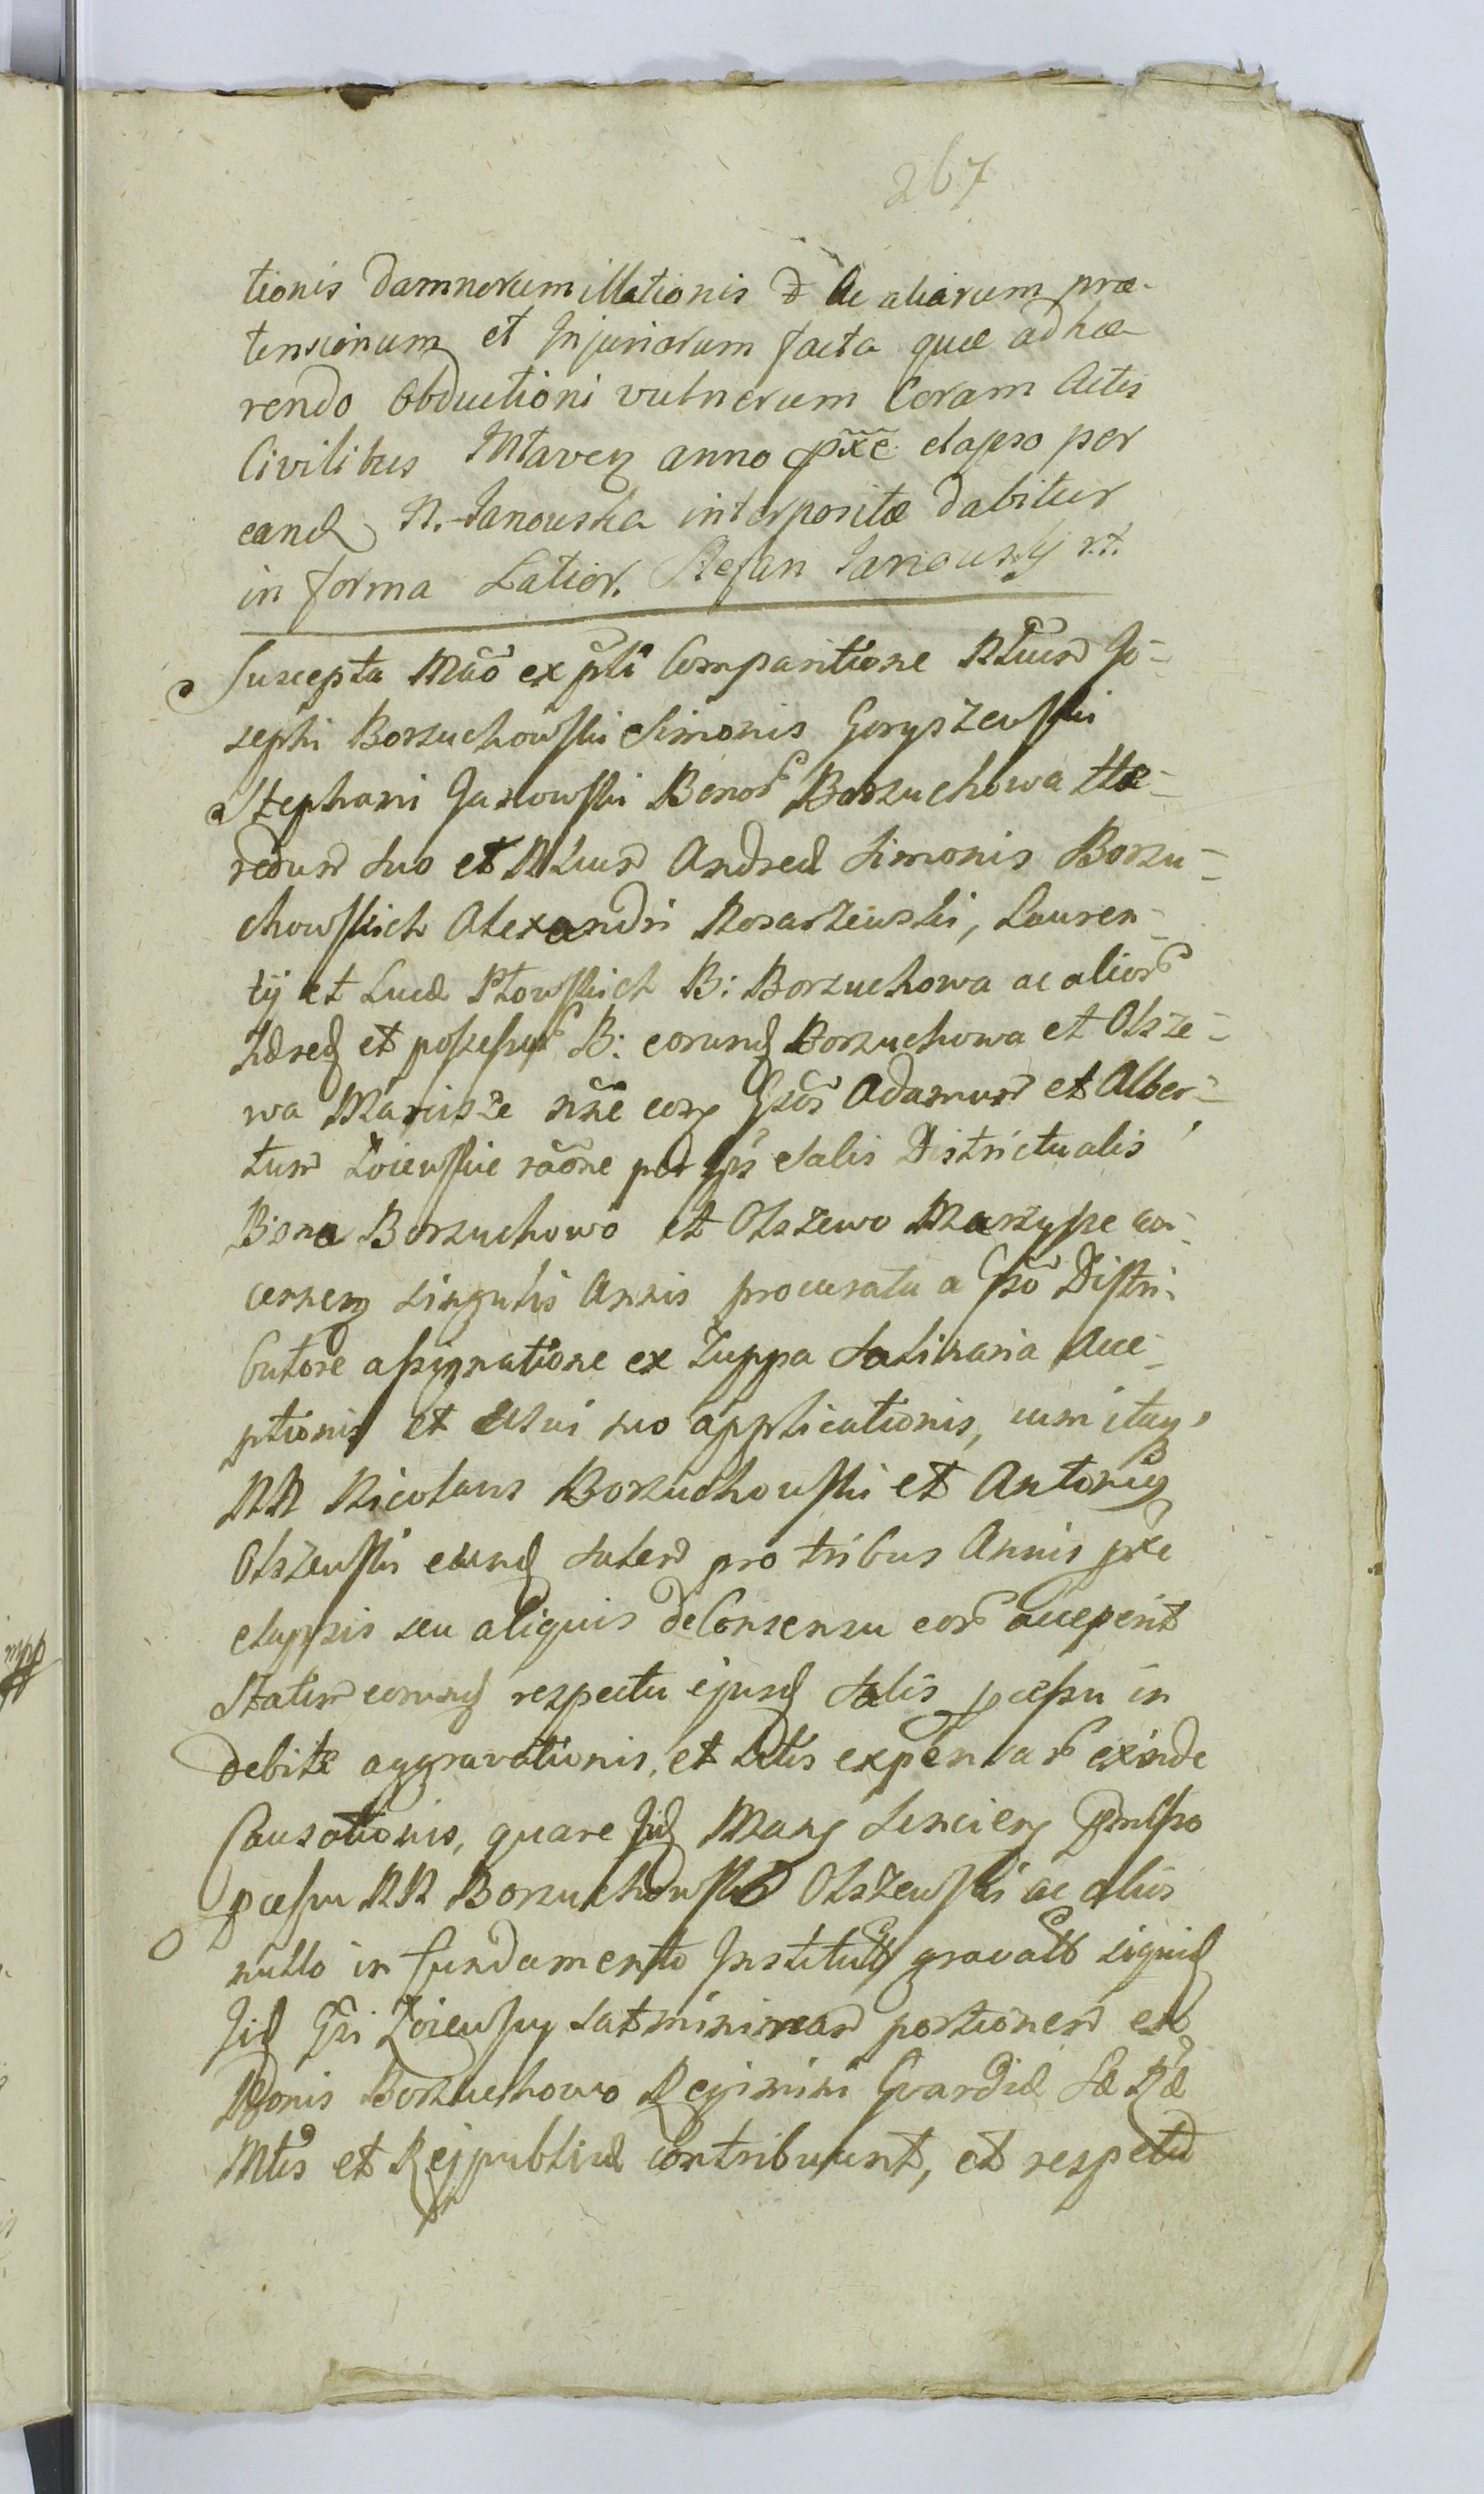 267
tionis damnorum illationis & ac aliarum præ-
tensionum et Injuriarum facta quæ adhæ
rendo Obductioni vulnerum Coram Actis
Civilibus Mlaven anno pxe elapso per
eand N. Janouska interpositæ dabitur
in forma Latior. Stefan Janousky r.t.
Suscepta Mãõ ex pti Comparitione NNum Jo-
sephi Borzuchowski Simonis Goryszewski
Stephani Janowski Bonor Borzuchowa Hæ-
redum suo et NNum Andreæ Simonis Borzu-
chowskich Alexandri Kosarzewski, Lauren-
tij et Lucæ Płowskich B: Borzuchowa ac alior
hæred et possessor B: eorund Borzuchowa et Olsze-
wa Marcisze nne cor Gsos Adamum et Alber-
tum Zoiewskie raõne per Ipss Salis Districtualis
Bona Borzuchowo et Olszewo Marzysze con-
cernen singulis Annis procurata a Gso Distri-
butore assignatione ex Zuppa Salinaria Acce-
ptionis et usui suo applicationis, cum itaq,
NN Nicolaus Borzuchowski et Antonig
Olszewski eund Salem pro tribus Annis pxe
elapsis seu aliquis de Consensu eor acceperit
Statim eorund respectu ejusd Salis pcessu in
debitæ aggravationis, et Litis expensar exinde
Causationis, quare Iid Man Scncien pmisso
pcessu NN Borzuchowski Olszewski ac alios
nullo in fundamento Institutt gravatt siquid
Iid Gsi Zoiewscy sat minimam portionem ex
Bonis Borzuchowo Regimini Gvardiæ Sæ Ræ
Mtis et Rejpublicæ contribuunt, et respectu